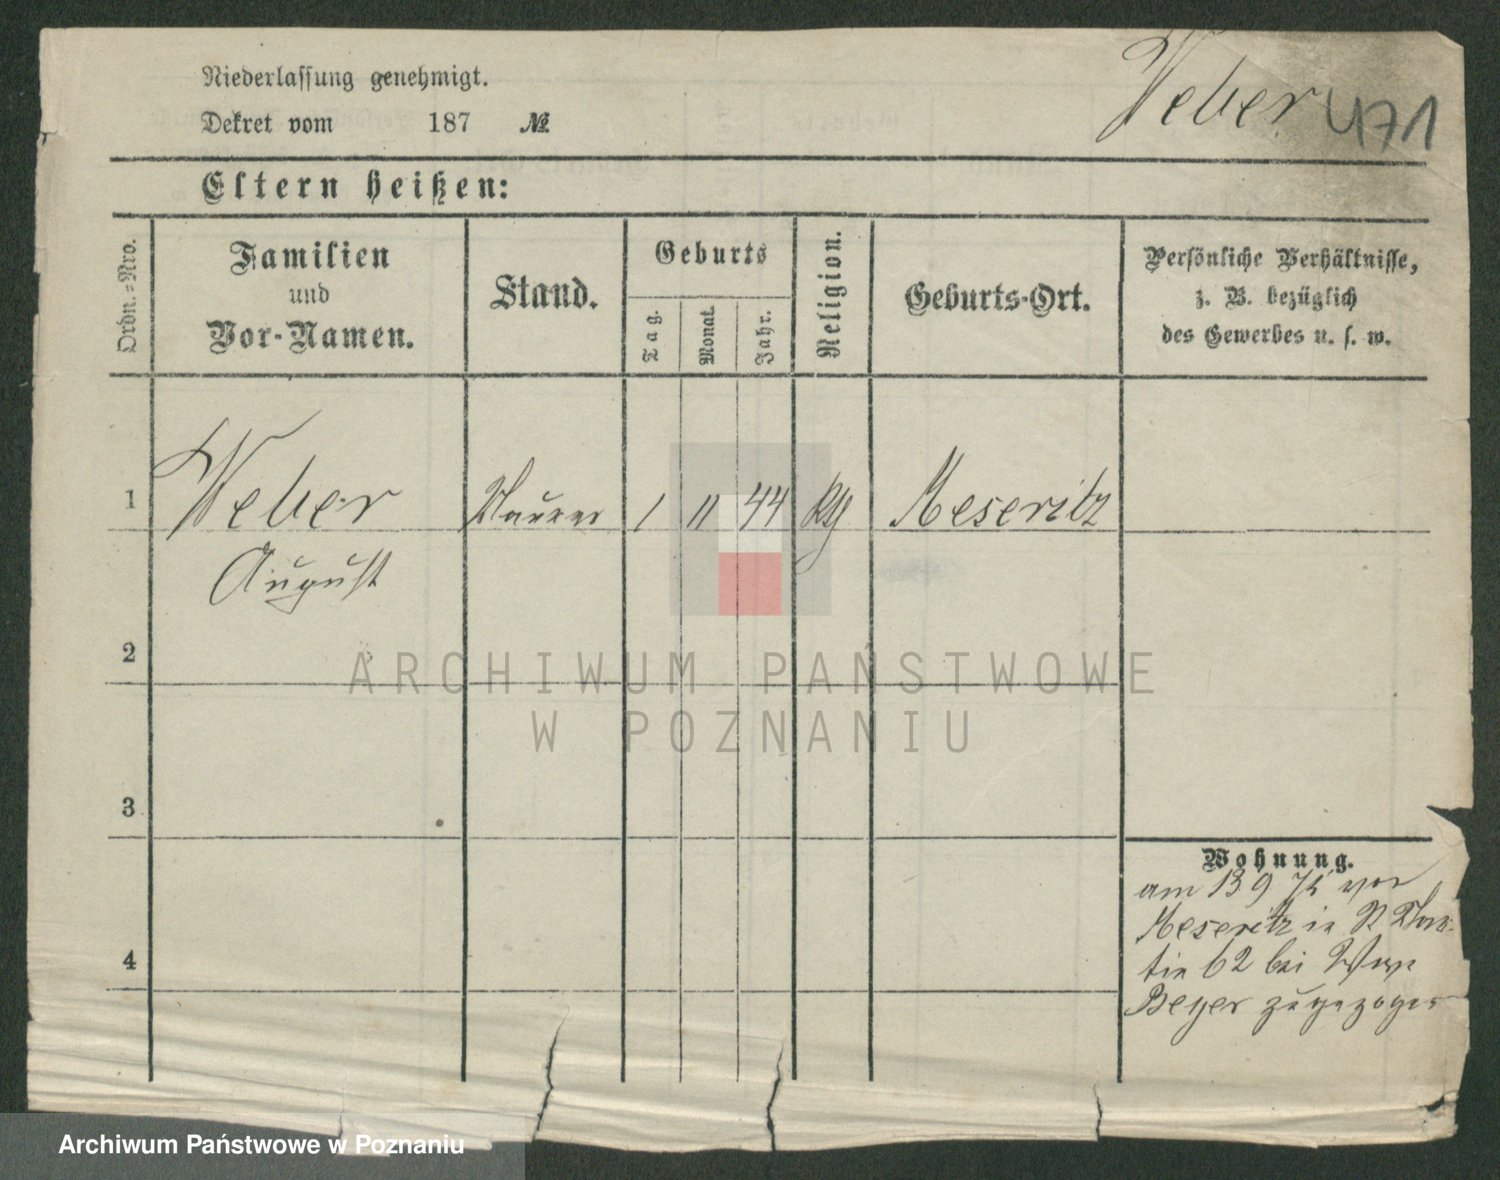 Weber 471
Niederlassung genehmigt.
Dekret vom 187 №
Eltern heißen:
Ordn.-Nro.
Familien
und
Vor-Namen.
Stand.
Geburts
Tag.
Monat.
Jahr.
Religion.
Geburts-Ort.
Persönliche Verhältnisse,
z. B. bezüglich
des Gewerbes u. s. w.
1 Weber Maurer 1 11 44 Meseritz
August
2
3
4
Wohnung.
am 13 9 von
Meseritz in St Mar-
tin 62 bei
Beyer zugezogen
ARCHIWUM PAŃSTWOWE
W POZNANIU
Archiwum Państwowe w Poznaniu